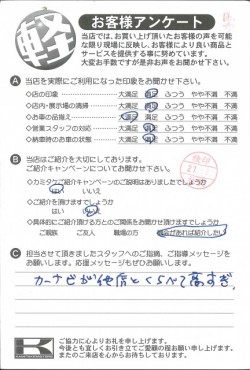 軽
お客様アンケート
当店では、お買い上げ頂いたお客様の声を可能
な限り現場に反映し、お客様により良い商品と
サービスを提供する事に努めています。
大変お手数ですが是非お声をお聞かせ下さい。
A 当店を実際にご利用になった印象をお聞かせ下さい。
◇店の印象 大満足 満足 ふつう やや不満 不満
◇店内・展示場の清掃 大満足 満足 ふつう やや不満 不満
◇お車の品揃え 大満足 満足 ふつう やや不満 不満
◇営業スタッフの対応 大満足 満足 ふつう やや不満 不満
◇納車時のお車の状態 大満足 満足 ふつう やや不満 不満
B 当店はご紹介を大切にしております。
ご紹介キャンペーンについてお聞かせ下さい。
◇カミタケご紹介キャンペーンのご説明はありましたでしょうか
はい いいえ
◇ご紹介を頂けますでしょうか
はい
◇具体的にご紹介頂ける方との関係をお聞かせ下さい
ご親族 ご友人 職場の方 機会があれば紹介したい
C 担当させて頂きましたスタッフへのご指摘、ご指導メッセージを
お願いします。応援メッセージもぜひお願いします。
カーナビが他店とくらべて高すぎ
K
ご協力に心よりお礼を申し上げます。
今後とも宜しくお引き立てご愛顧の程お願い申し上げます。
またのご来店を心からお待ちしております。